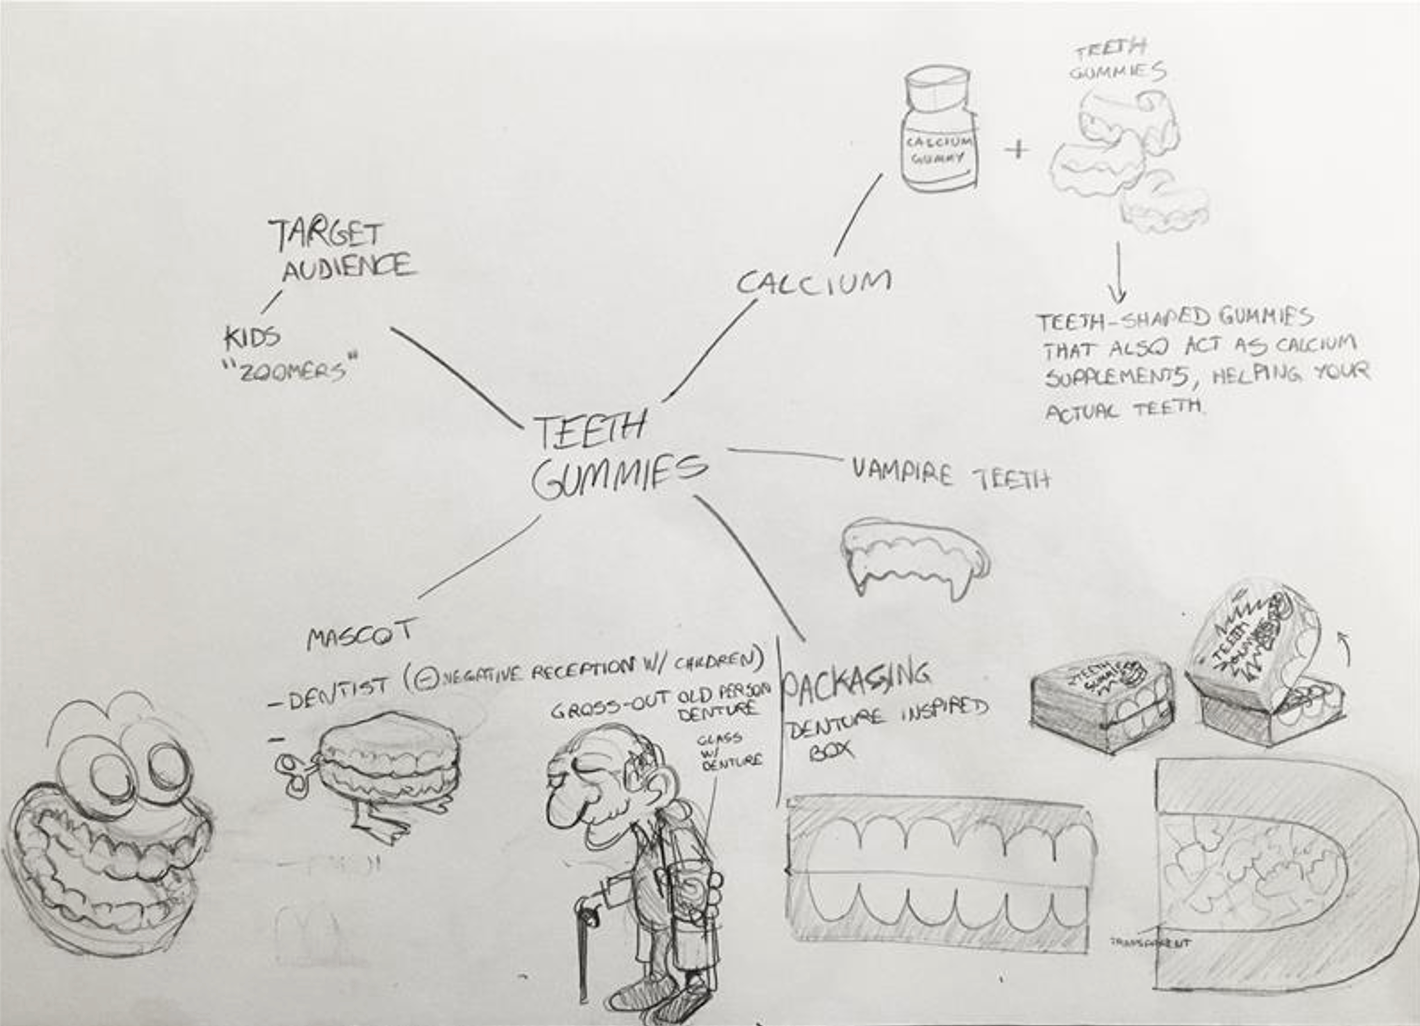 TEETH
GUMMIES
CALCIUM
GUMMY
+
TARGET
AUDIENCE
KIDS
"ZOOMERS"
CALCIUM
TEETH-SHAPED GUMMIES
THAT ALSO ACT AS CALCIUM
SUPPLEMENTS, HELPING YOUR
ACTUAL TEETH.
TEETH
GUMMIES
VAMPIRE TEETH
MASCOT
- DENTIST (⊖ NEGATIVE RECEPTION W/ CHILDREN)
-
GROSS-OUT OLD PERSON
DENTURE
GLASS
W/
DENTURE
PACKAGING
DENTURE INSPIRED
BOX
TEETH
GUMMIES
TEETH
GUMMIES
TRANSPARENT